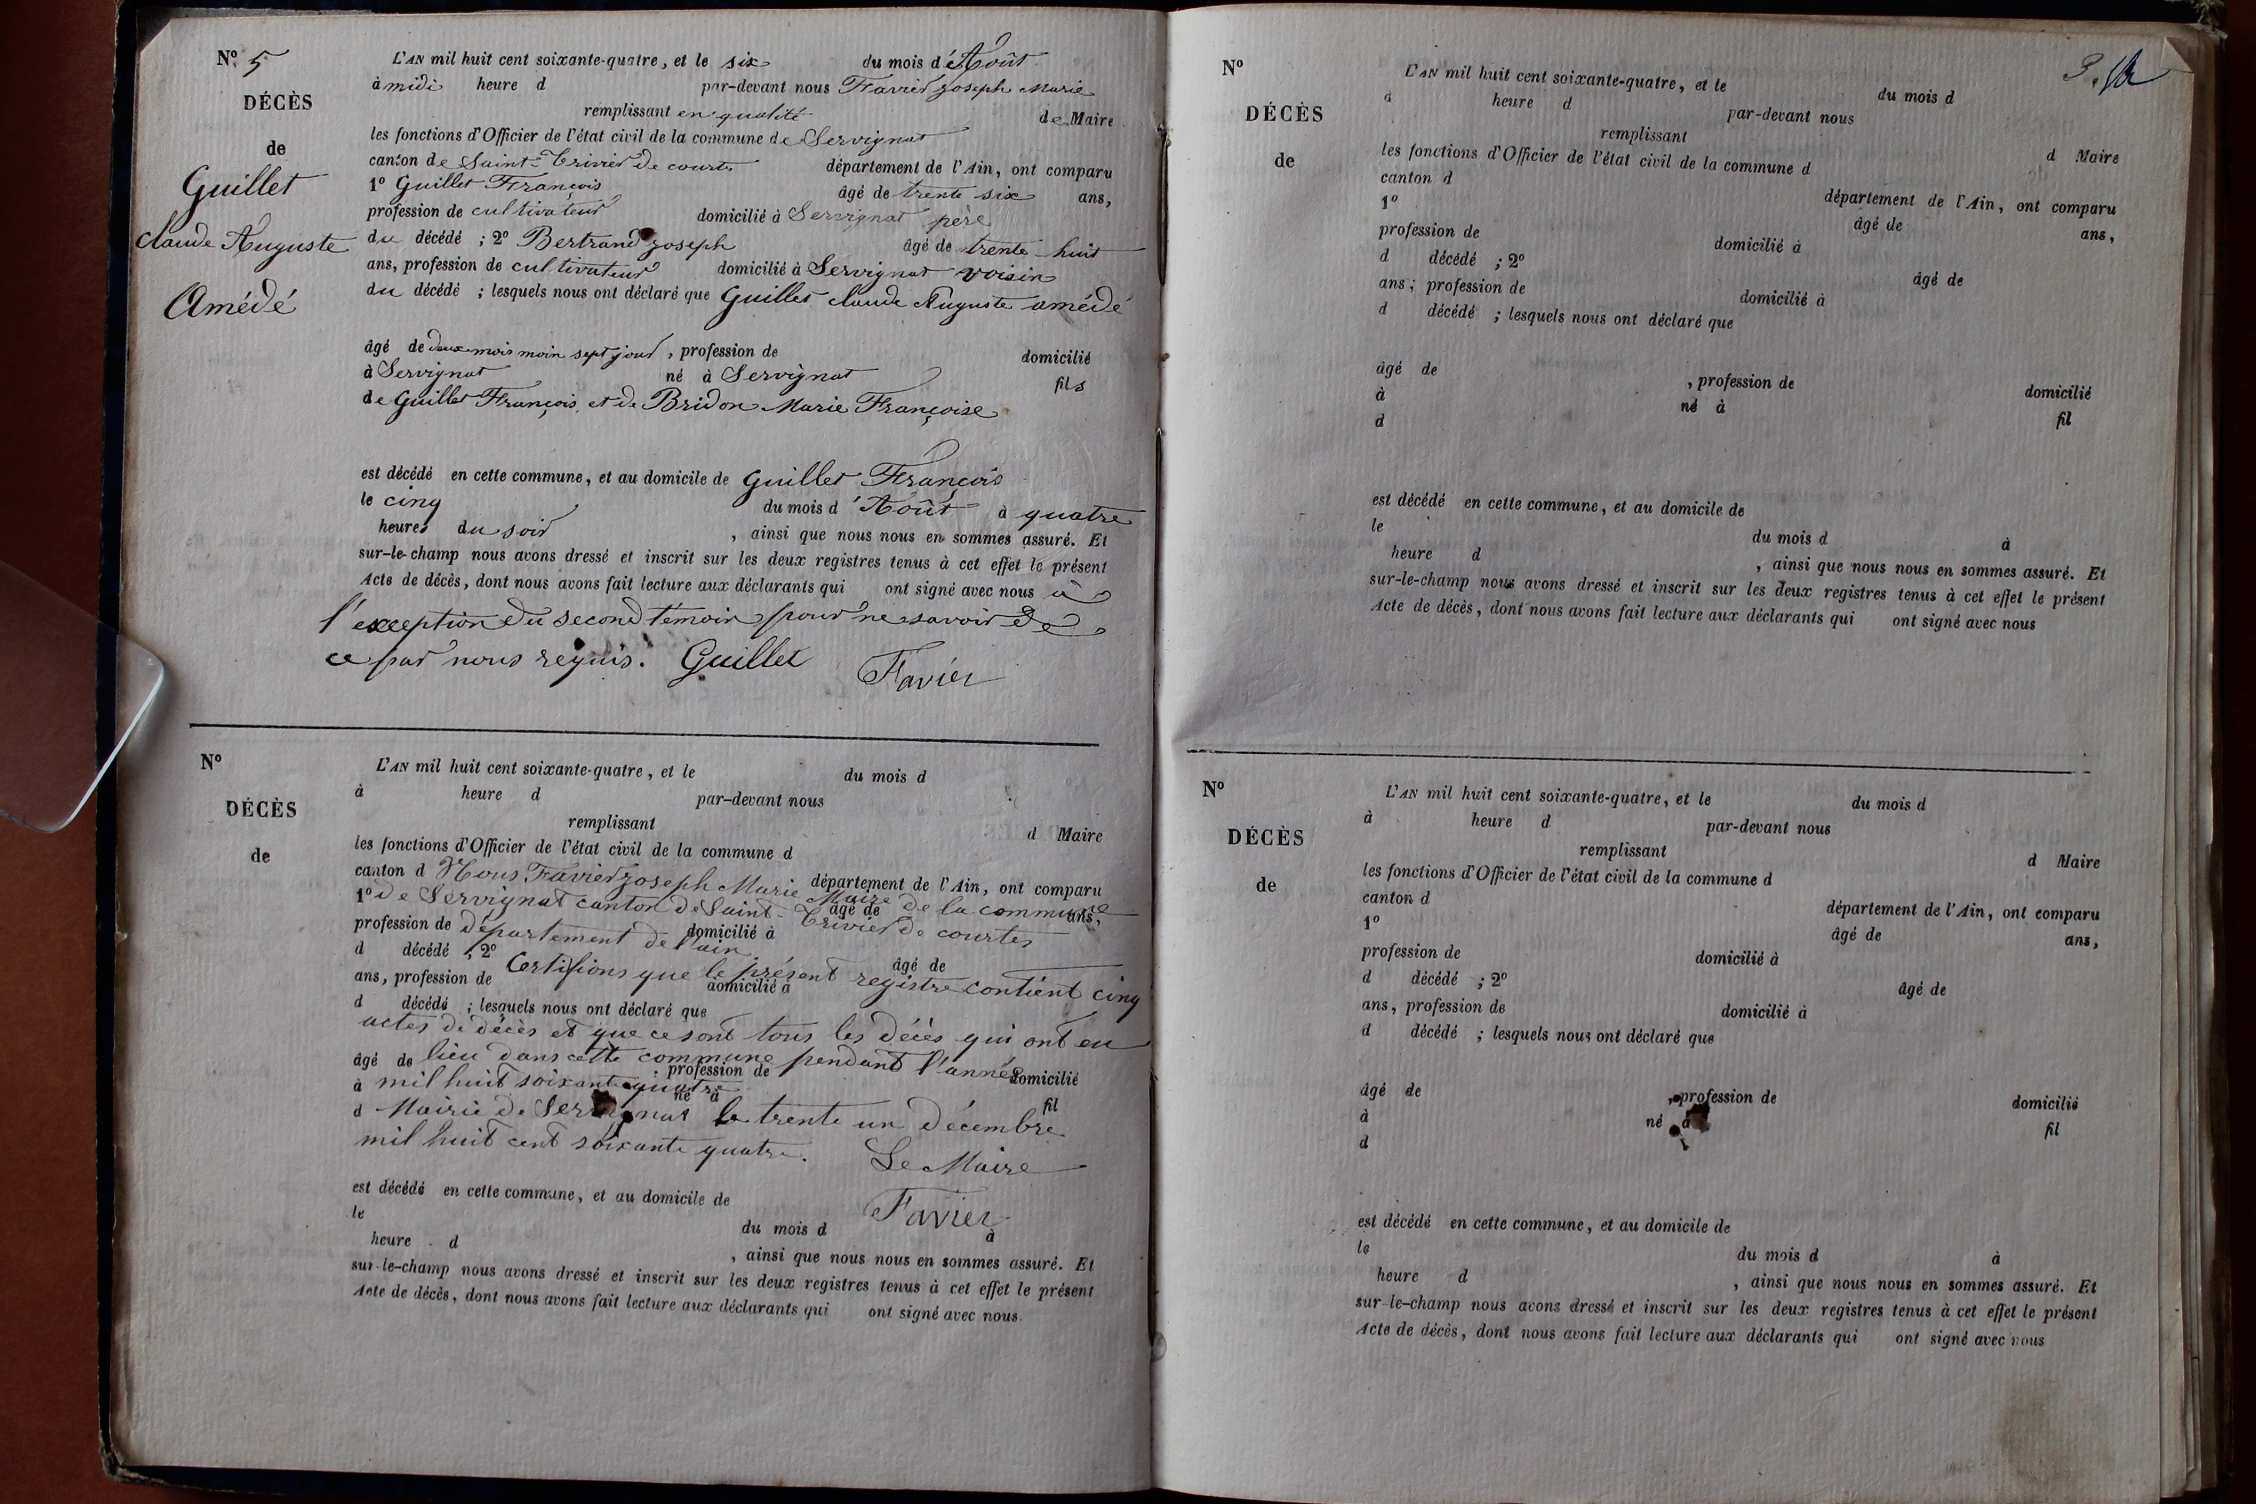 Nº 5
DÉCÈS
de
Guillet
claude Auguste
Amédé
L'AN mil huit cent soixante-quatre, et le six du mois d'Août
à midi heure d par-devant nous Favier joseph Marie
remplissant en qualité de Maire
les fonctions d'Officier de l'état civil de la commune de Servignat
canton de Saint-Trivier de courtes département de l'Ain, ont comparu
1º Guillet François âgé de trente six ans,
profession de cultivateur domicilié à Servignat père
du décédé ; 2º Bertrand joseph âgé de trente huit
ans, profession de cultivateur domicilié à Servignat voisin
du décédé ; lesquels nous ont déclaré que Guillet claude Auguste amédé
âgé de deux mois moin sept jour , profession de domicilié
à Servignat né à Servignat fils
de Guillet François et de Bridon Marie Françoise
est décédé en cette commune, et au domicile de Guillet François
le cinq du mois d'Août à quatre
heures du soir , ainsi que nous nous en sommes assuré. Et
sur-le-champ nous avons dressé et inscrit sur les deux registres tenus à cet effet le présent
Acte de décès, dont nous avons fait lecture aux déclarants qui ont signé avec nous à
l'exception du second témoin pour ne savoir de
ce par nous requis. Guillet Favier
Nº
DÉCÈS
de
L'AN mil huit cent soixante-quatre, et le du mois d
à heure d par-devant nous
remplissant d Maire
les fonctions d'Officier de l'état civil de la commune d
canton d département de l'Ain, ont comparu
Nous Favier joseph Marie Maire de la commune
1º âgé de ans,
de Servignat canton de Saint-Trivier de courtes
profession de domicilié à
département de l'ain
d décédé ; 2º âgé de
Certifions que le présent registre contient cinq
ans, profession de domicilié à
d décédé ; lesquels nous ont déclaré que
actes de décès et que ce sont tous les décès qui ont eu
lieu dans cette commune pendant l'année
âgé de , profession de domicilié
mil huit soixante quatre
à né à fil
d
Mairie de Servignat le trente un décembre
mil huit cent soixante quatre. Le Maire
est décédé en cette commune, et au domicile de
Favier
le du mois d à
heure d , ainsi que nous nous en sommes assuré. Et
sur-le-champ nous avons dressé et inscrit sur les deux registres tenus à cet effet le présent
Acte de décès, dont nous avons fait lecture aux déclarants qui ont signé avec nous.
3.
Nº
DÉCÈS
de
L'AN mil huit cent soixante-quatre, et le du mois d
à heure d par-devant nous
remplissant d Maire
les fonctions d'Officier de l'état civil de la commune d
canton d département de l'Ain, ont comparu
1º âgé de ans,
profession de domicilié à
d décédé ; 2º âgé de
ans; profession de domicilié à
d décédé ; lesquels nous ont déclaré que
âgé de , profession de domicilié
à né à fil
d
est décédé en cette commune, et au domicile de
le du mois d à
heure d , ainsi que nous nous en sommes assuré. Et
sur-le-champ nous avons dressé et inscrit sur les deux registres tenus à cet effet le présent
Acte de décès, dont nous avons fait lecture aux déclarants qui ont signé avec nous
Nº
DÉCÈS
de
L'AN mil huit cent soixante-quatre, et le du mois d
à heure d par-devant nous
remplissant d Maire
les fonctions d'Officier de l'état civil de la commune d
canton d département de l'Ain, ont comparu
1º âgé de ans,
profession de domicilié à
d décédé ; 2º âgé de
ans, profession de domicilié à
d décédé ; lesquels nous ont déclaré que
âgé de , profession de domicilié
à né à fil
d
est décédé en cette commune, et au domicile de
le du mois d à
heure d , ainsi que nous nous en sommes assuré. Et
sur-le-champ nous avons dressé et inscrit sur les deux registres tenus à cet effet le présent
Acte de décès, dont nous avons fait lecture aux déclarants qui ont signé avec nous